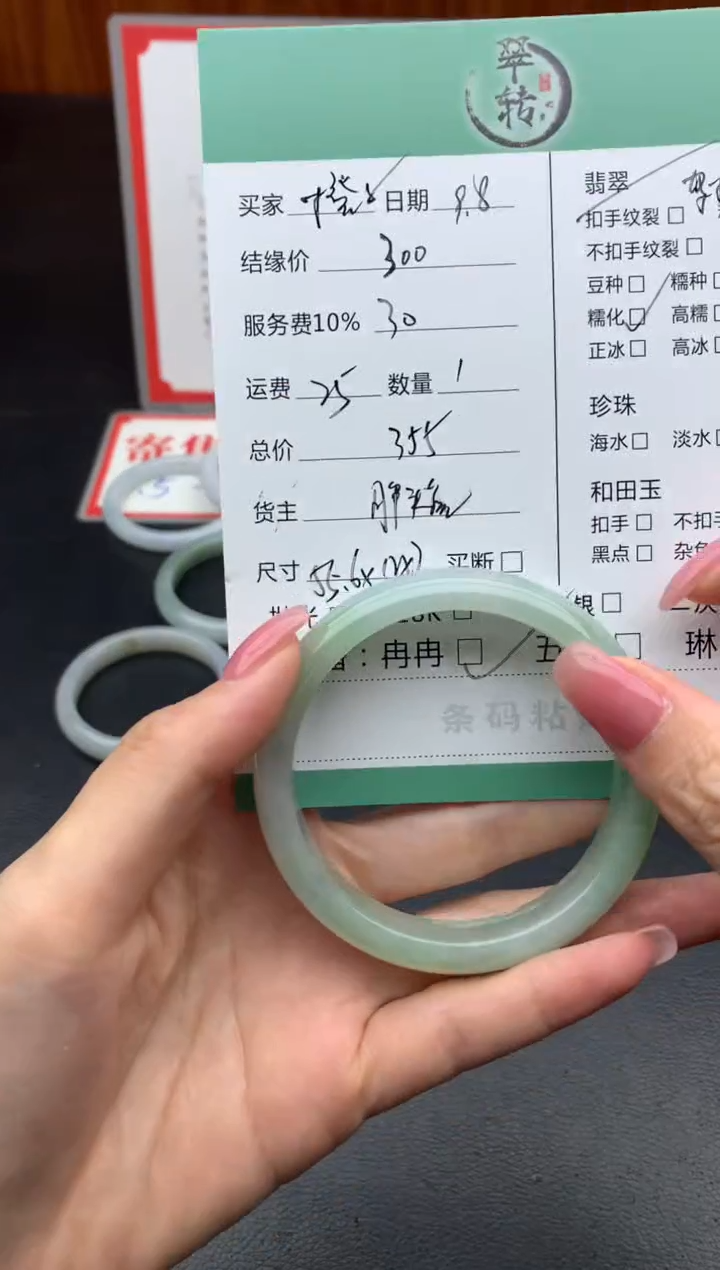 翠转
买家 日期 9.8
结缘价 300
服务费10% 30
运费 25 数量 1
总价 355
货主
尺寸 55.6x 买断□
冉冉□ 五 □ 琳
条码粘
翡翠
扣手纹裂□
不扣手纹裂□
豆种□ 糯种□
糯化□ 高糯□
正冰□ 高冰□
珍珠
海水□ 淡水□
和田玉
扣手□ 不扣手
黑点□ 杂色
银□